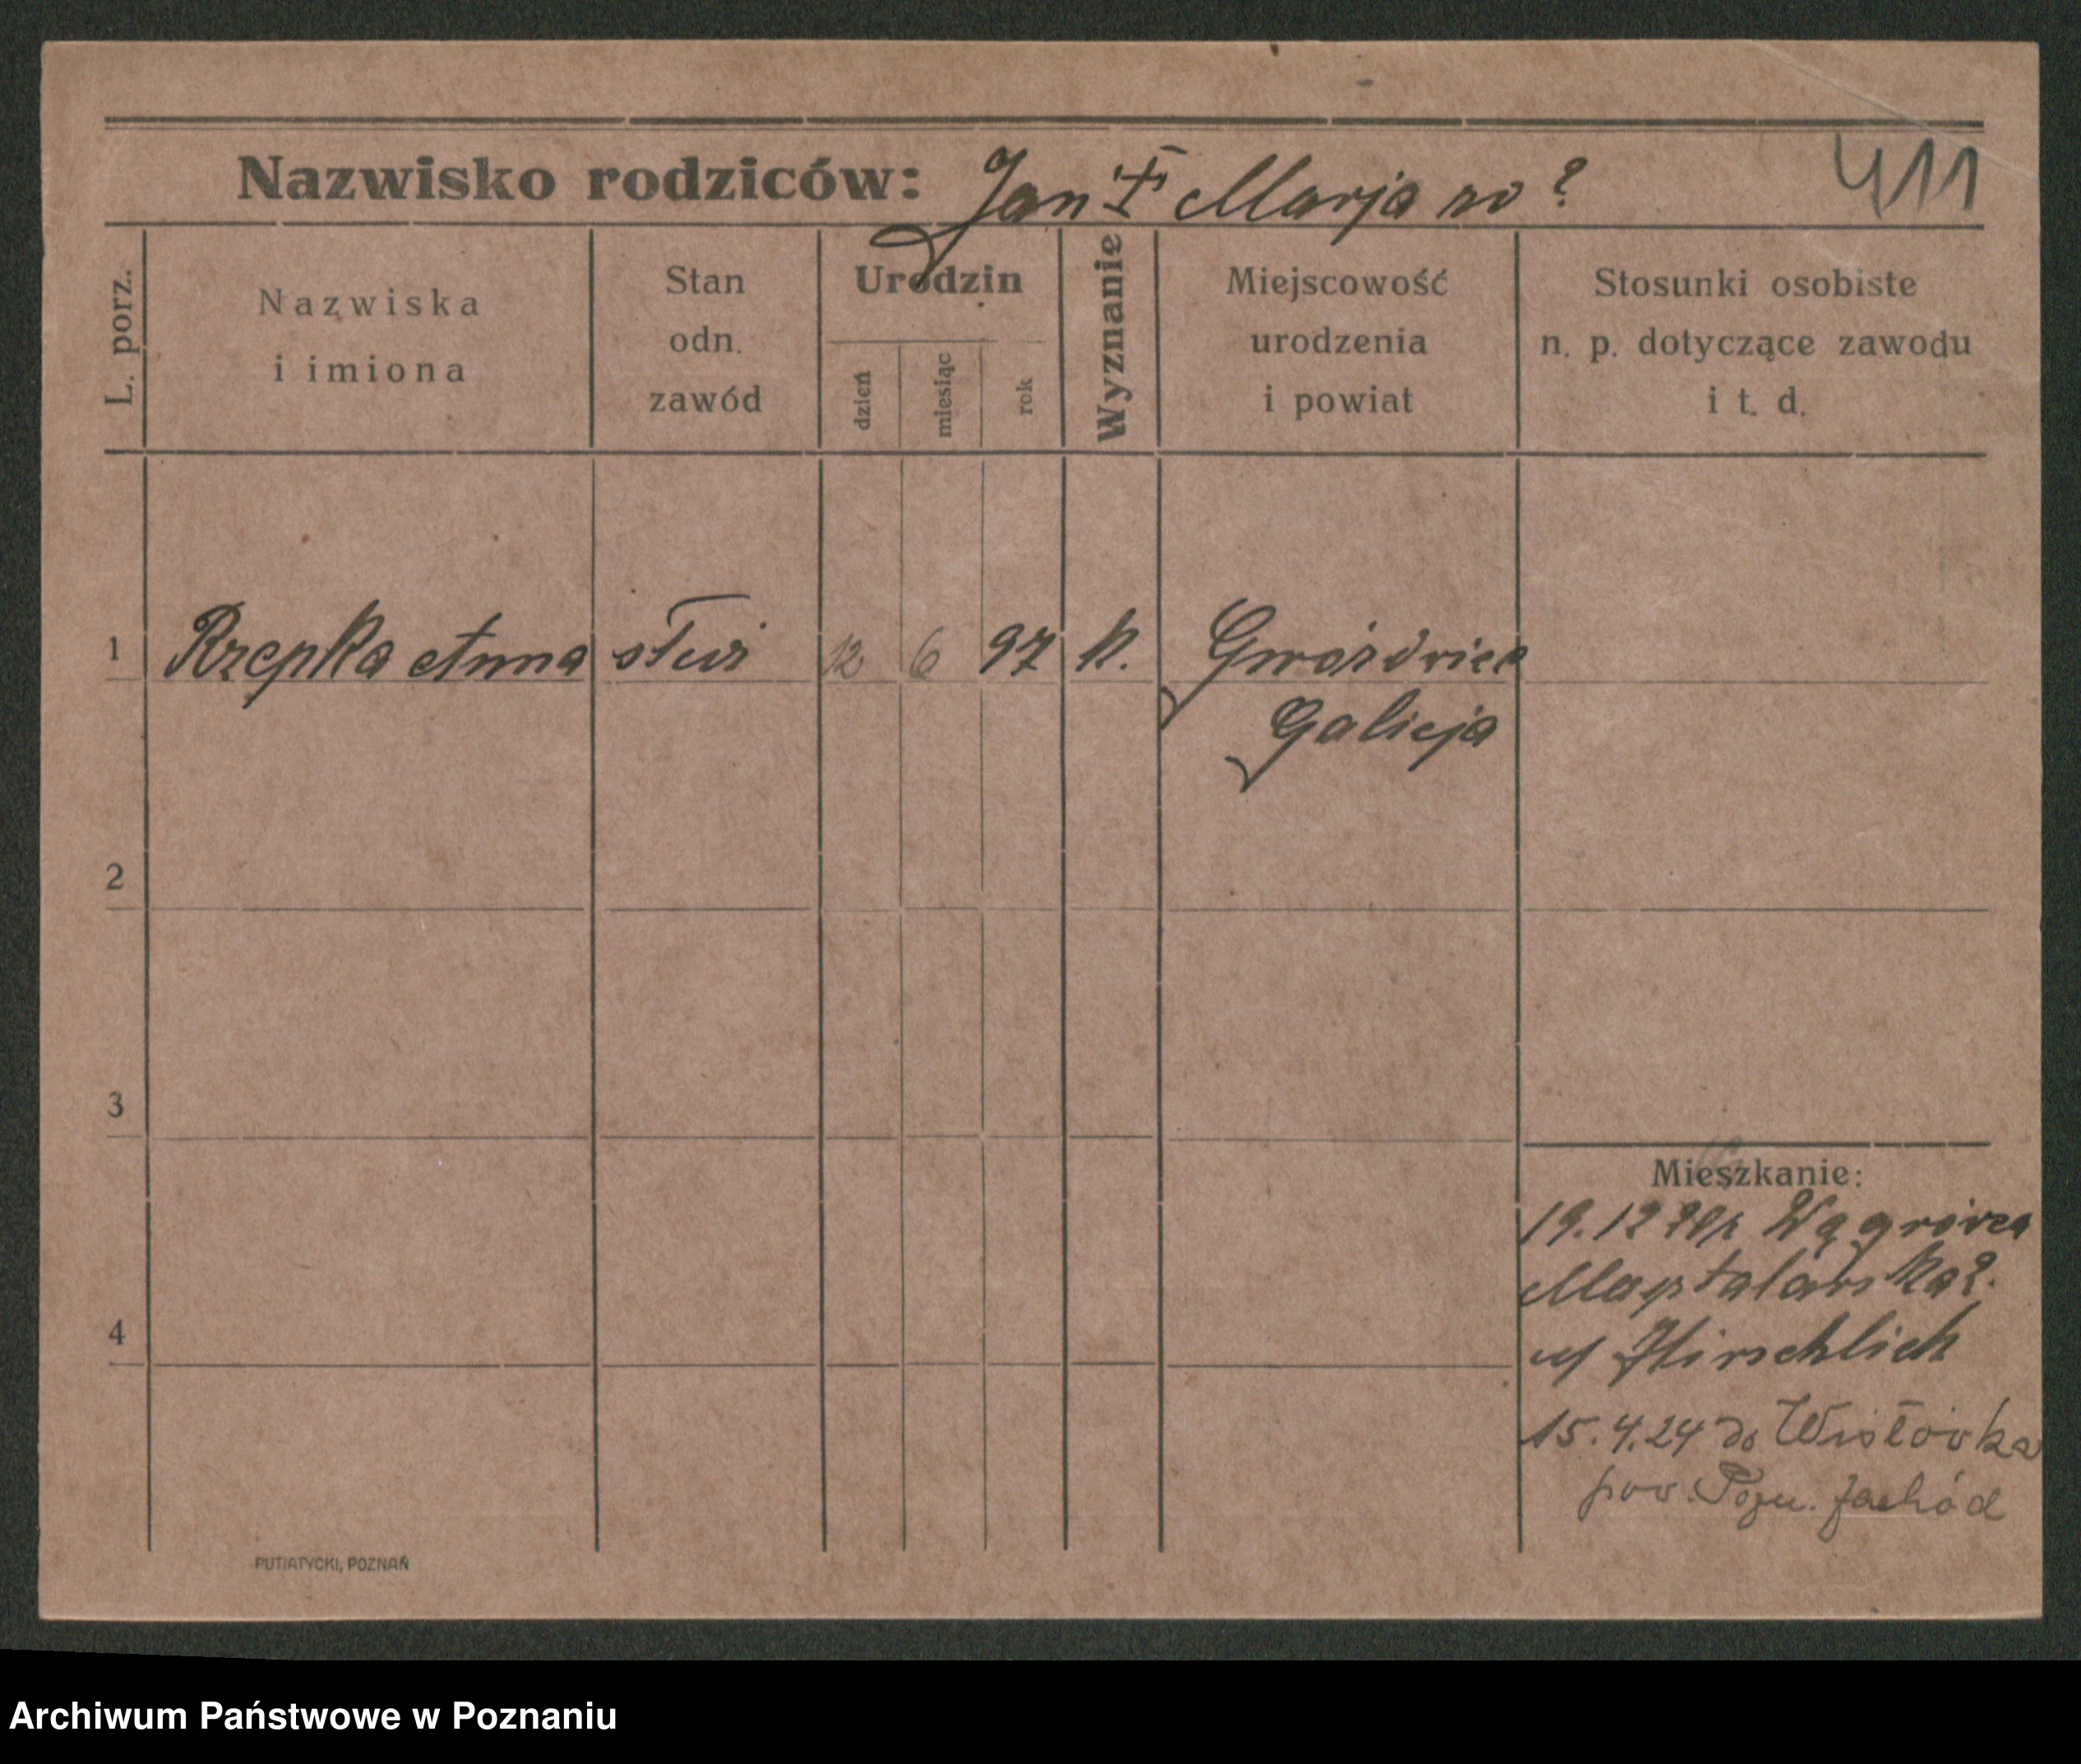 Nazwisko rodziców: Jan Marja ro ?
411
L. porz.
Nazwiska
i imiona
Stan
odn.
zawód
Urodzin
dzień
miesiąc
rok
Wyznanie
Miejscowość
urodzenia
i powiat
Stosunki osobiste
n. p. dotyczące zawodu
i t. d.
1 Rzepka Anna służ 12 6 97 k. Gwoździec
Galicja
2
3
4
Mieszkanie:
19.12 Wągrówca
u/ Hirschlich
15.4.24 do Wistówka
pow. Pozn. zachód
PUTIATYCKI, POZNAŃ
Archiwum Państwowe w Poznaniu